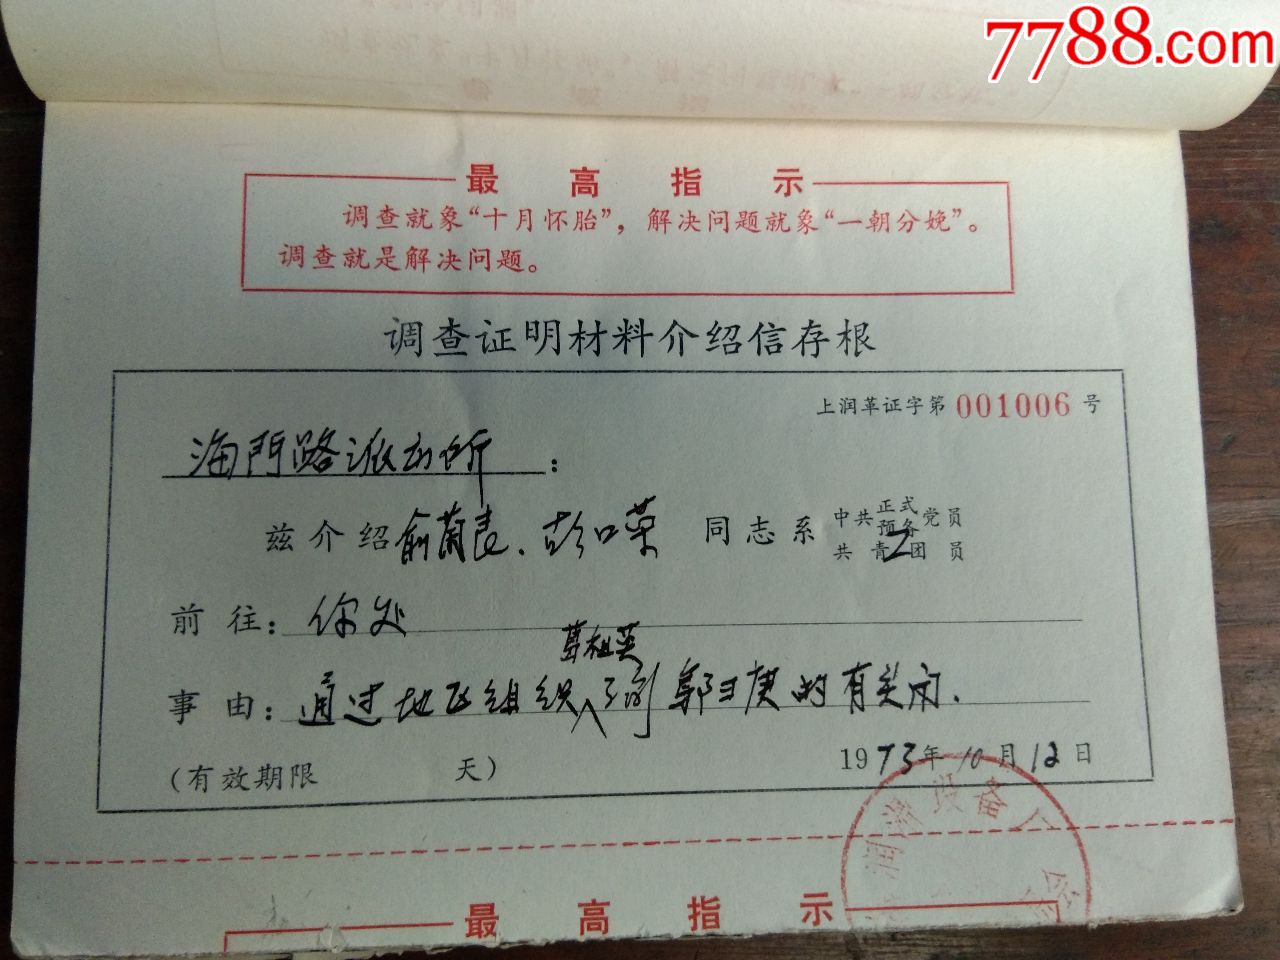 7788.com
最高指示
调查就象“十月怀胎”，解决问题就象“一朝分娩”。
调查就是解决问题。
调查证明材料介绍信存根
上润革证字第 001006 号
海门路派出所：
兹介绍俞菊良、彭口荣 同志系 中共正式预备党员 共青团员
前往：你处
葛祖英
事由：通过地区组织了解郭日庚的有关问.
(有效期限 天)
1973年10月12日
润滑设备厂
最高指示